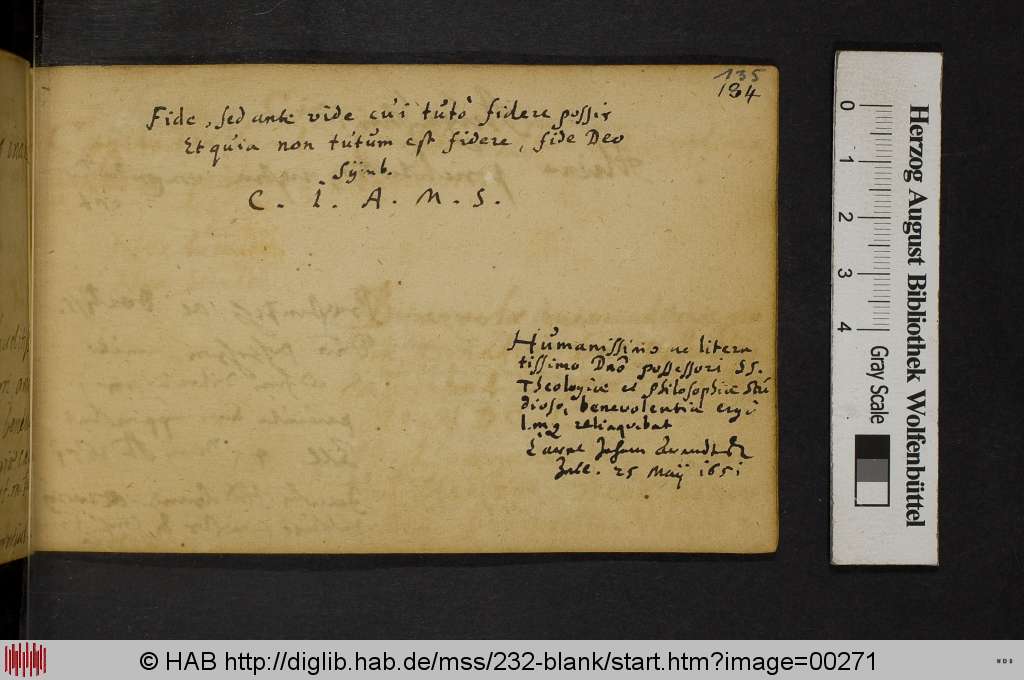 135
134
Fide, sed ante vide cui tutò fidere possis
Et quia non tutum est fidere, fide Deo
Symb.
C. I. A. M. S.
Humanissimo ac litera
tissimo Dnō possessori SS.
Theologiæ et philosophiæ Stu
dioso, benevolentiæ ergò
l.mq relinquebat
Johan
25 Maij 1651
0
1
2
3
4
Gray Scale
Herzog August Bibliothek Wolfenbüttel
© HAB http://diglib.hab.de/mss/232-blank/start.htm?image=00271